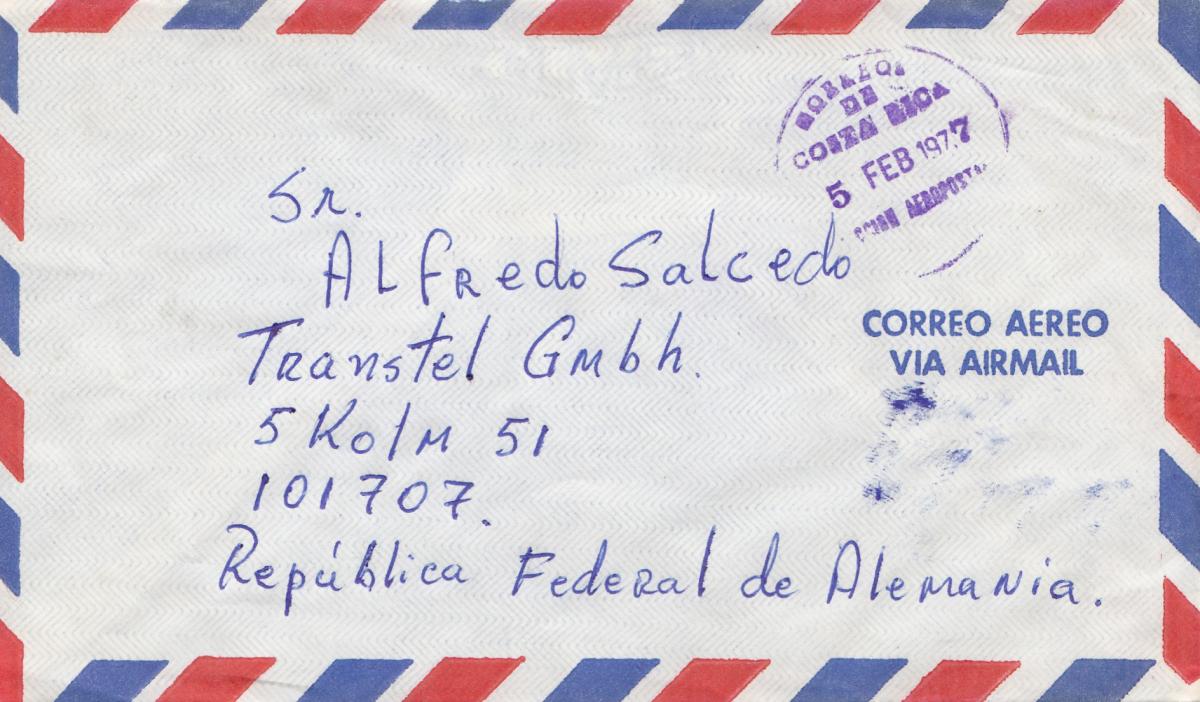 CORREOS
DE
COSTA RICA
5 FEB 1977
CCION AEROPOST
Sr.
Alfredo Salcedo
Transtel Gmbh.
5 Koln 51
101707.
República Federal de Alemania.
CORREO AEREO
VIA AIRMAIL